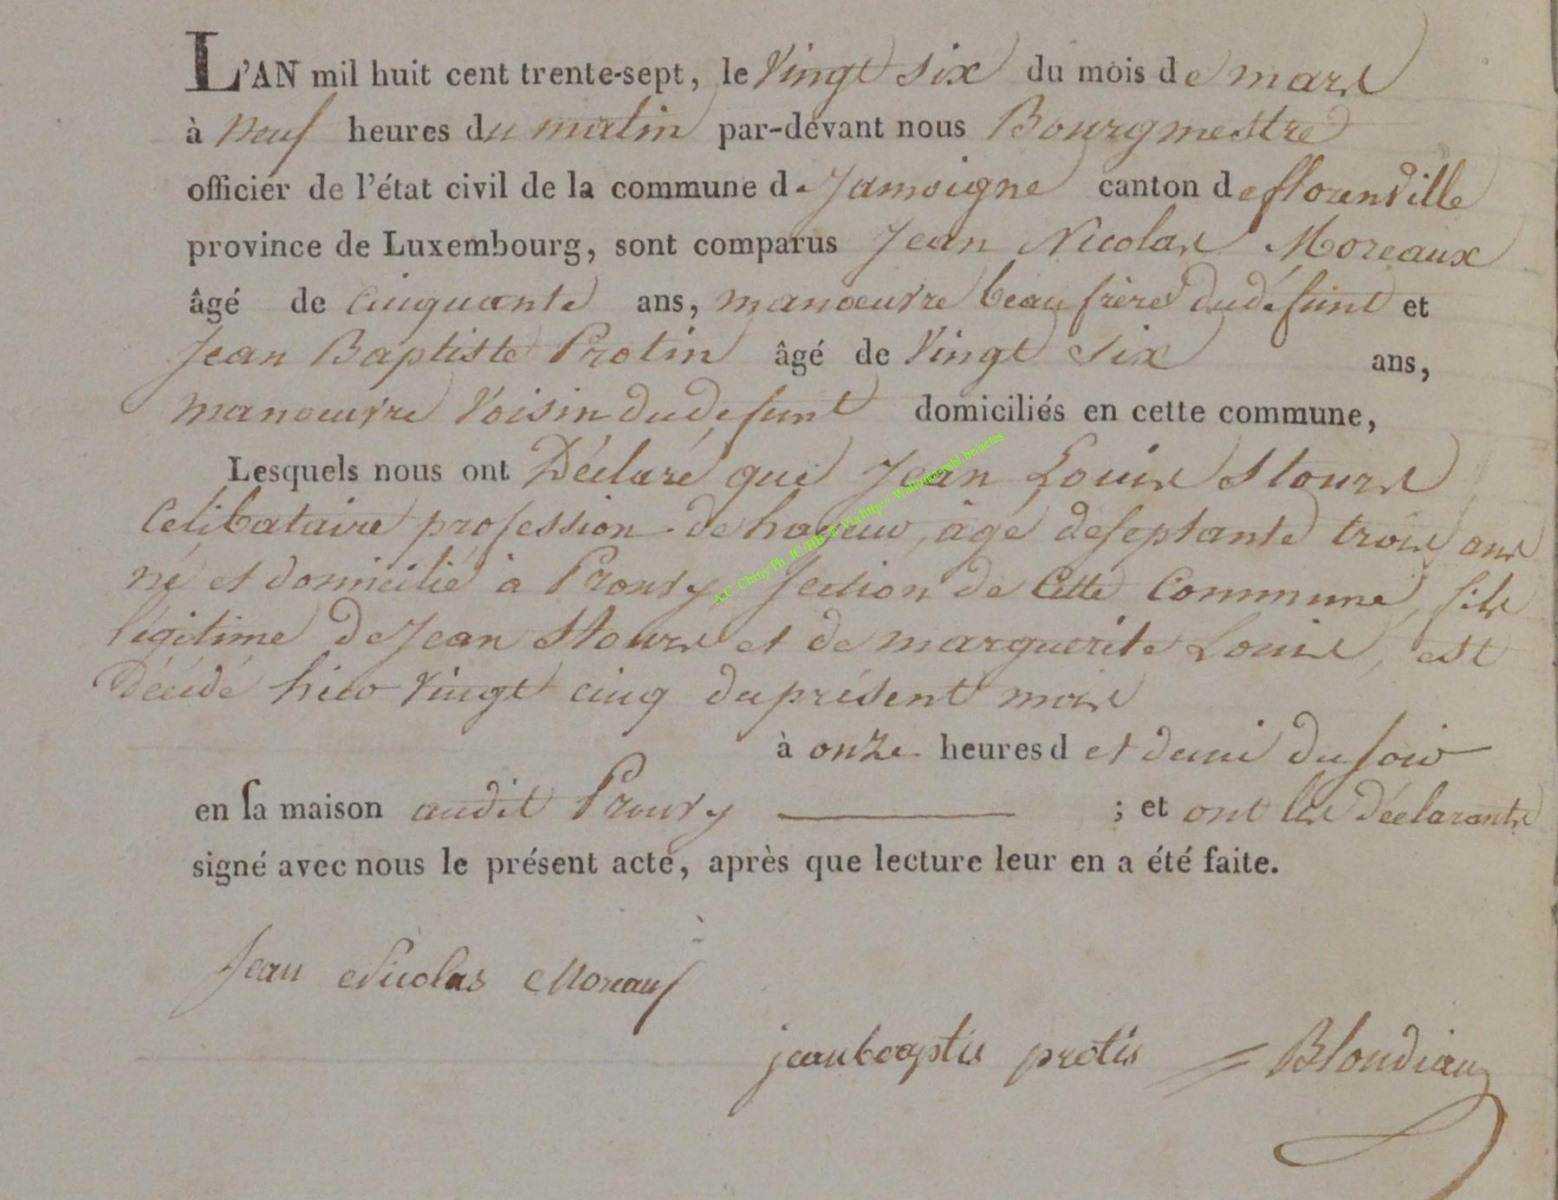 L'AN mil huit cent trente-sept, le Vingt six du mois de mars
à Neuf heures du matin par-devant nous Bourgmestre
officier de l'état civil de la commune de Jamoigne canton de florenville
province de Luxembourg, sont comparus Jean Nicolas Moreaux
âgé de Cinquante ans, manoeuvre beau frère du défunt et
Jean Baptiste Protin âgé de Vingt six ans,
manoeuvre Voisin du defunt domiciliés en cette commune,
Lesquels nous ont Déclaré que Jean Louis Stours
Celibataire profession de , âgé de septante trois ans
né et domicilié à Prouvy, Section de Cette Commune, fils
légitime de Jean Stours et de marguerite Louis, est
Décédé hier Vingt cinq du présent mois
à onze heures d et demi du soir
en sa maison audit Prouvy ; et ont les Déclarants
signé avec nous le présent acte, après que lecture leur en a été faite.
Jean Nicolas Moreaux
jean baptis protis = Blondiau